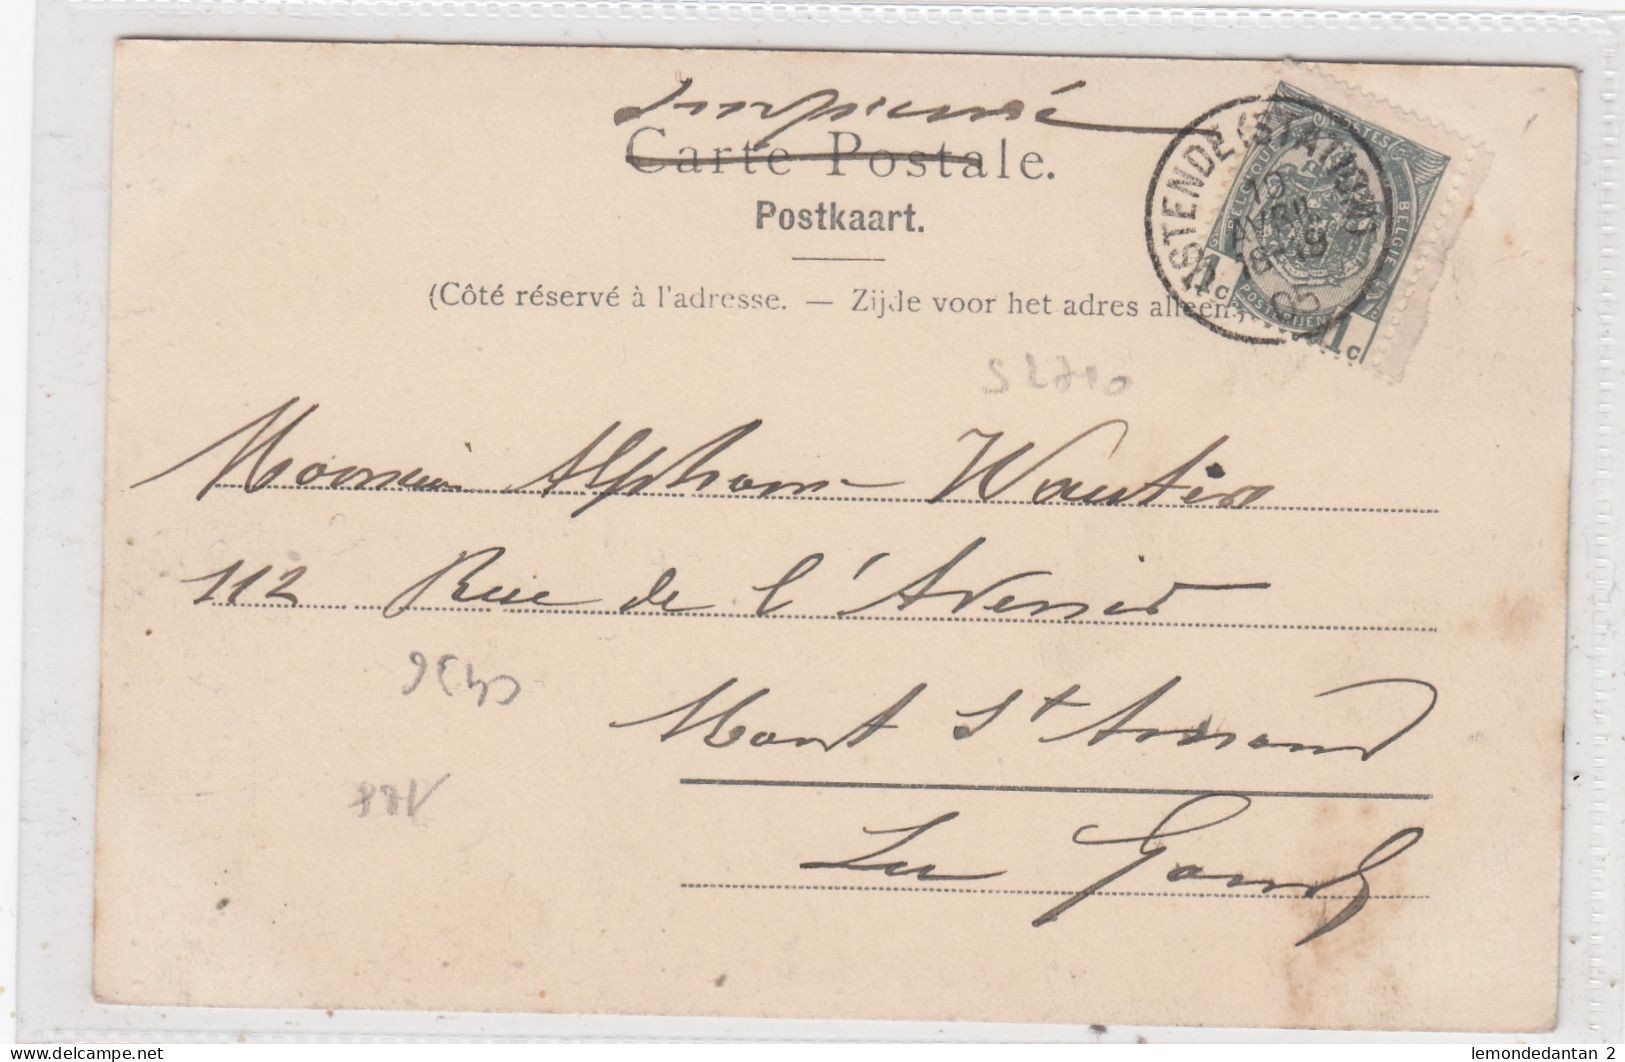 Imprimé
Carte Postale.
Postkaart.
(Côté réservé à l'adresse. — Zijde voor het adres alleen.)
OSTENDE (STATION)
10
AVRIL
18-19
POSTES BELGIQUE
BELGIE POSTERIJEN
1c 1c
S2710
Monsieur Alphons Wauters
112 Rue de l'Avenir
Mont St Amand
Lez Gand
lemondedantan 2